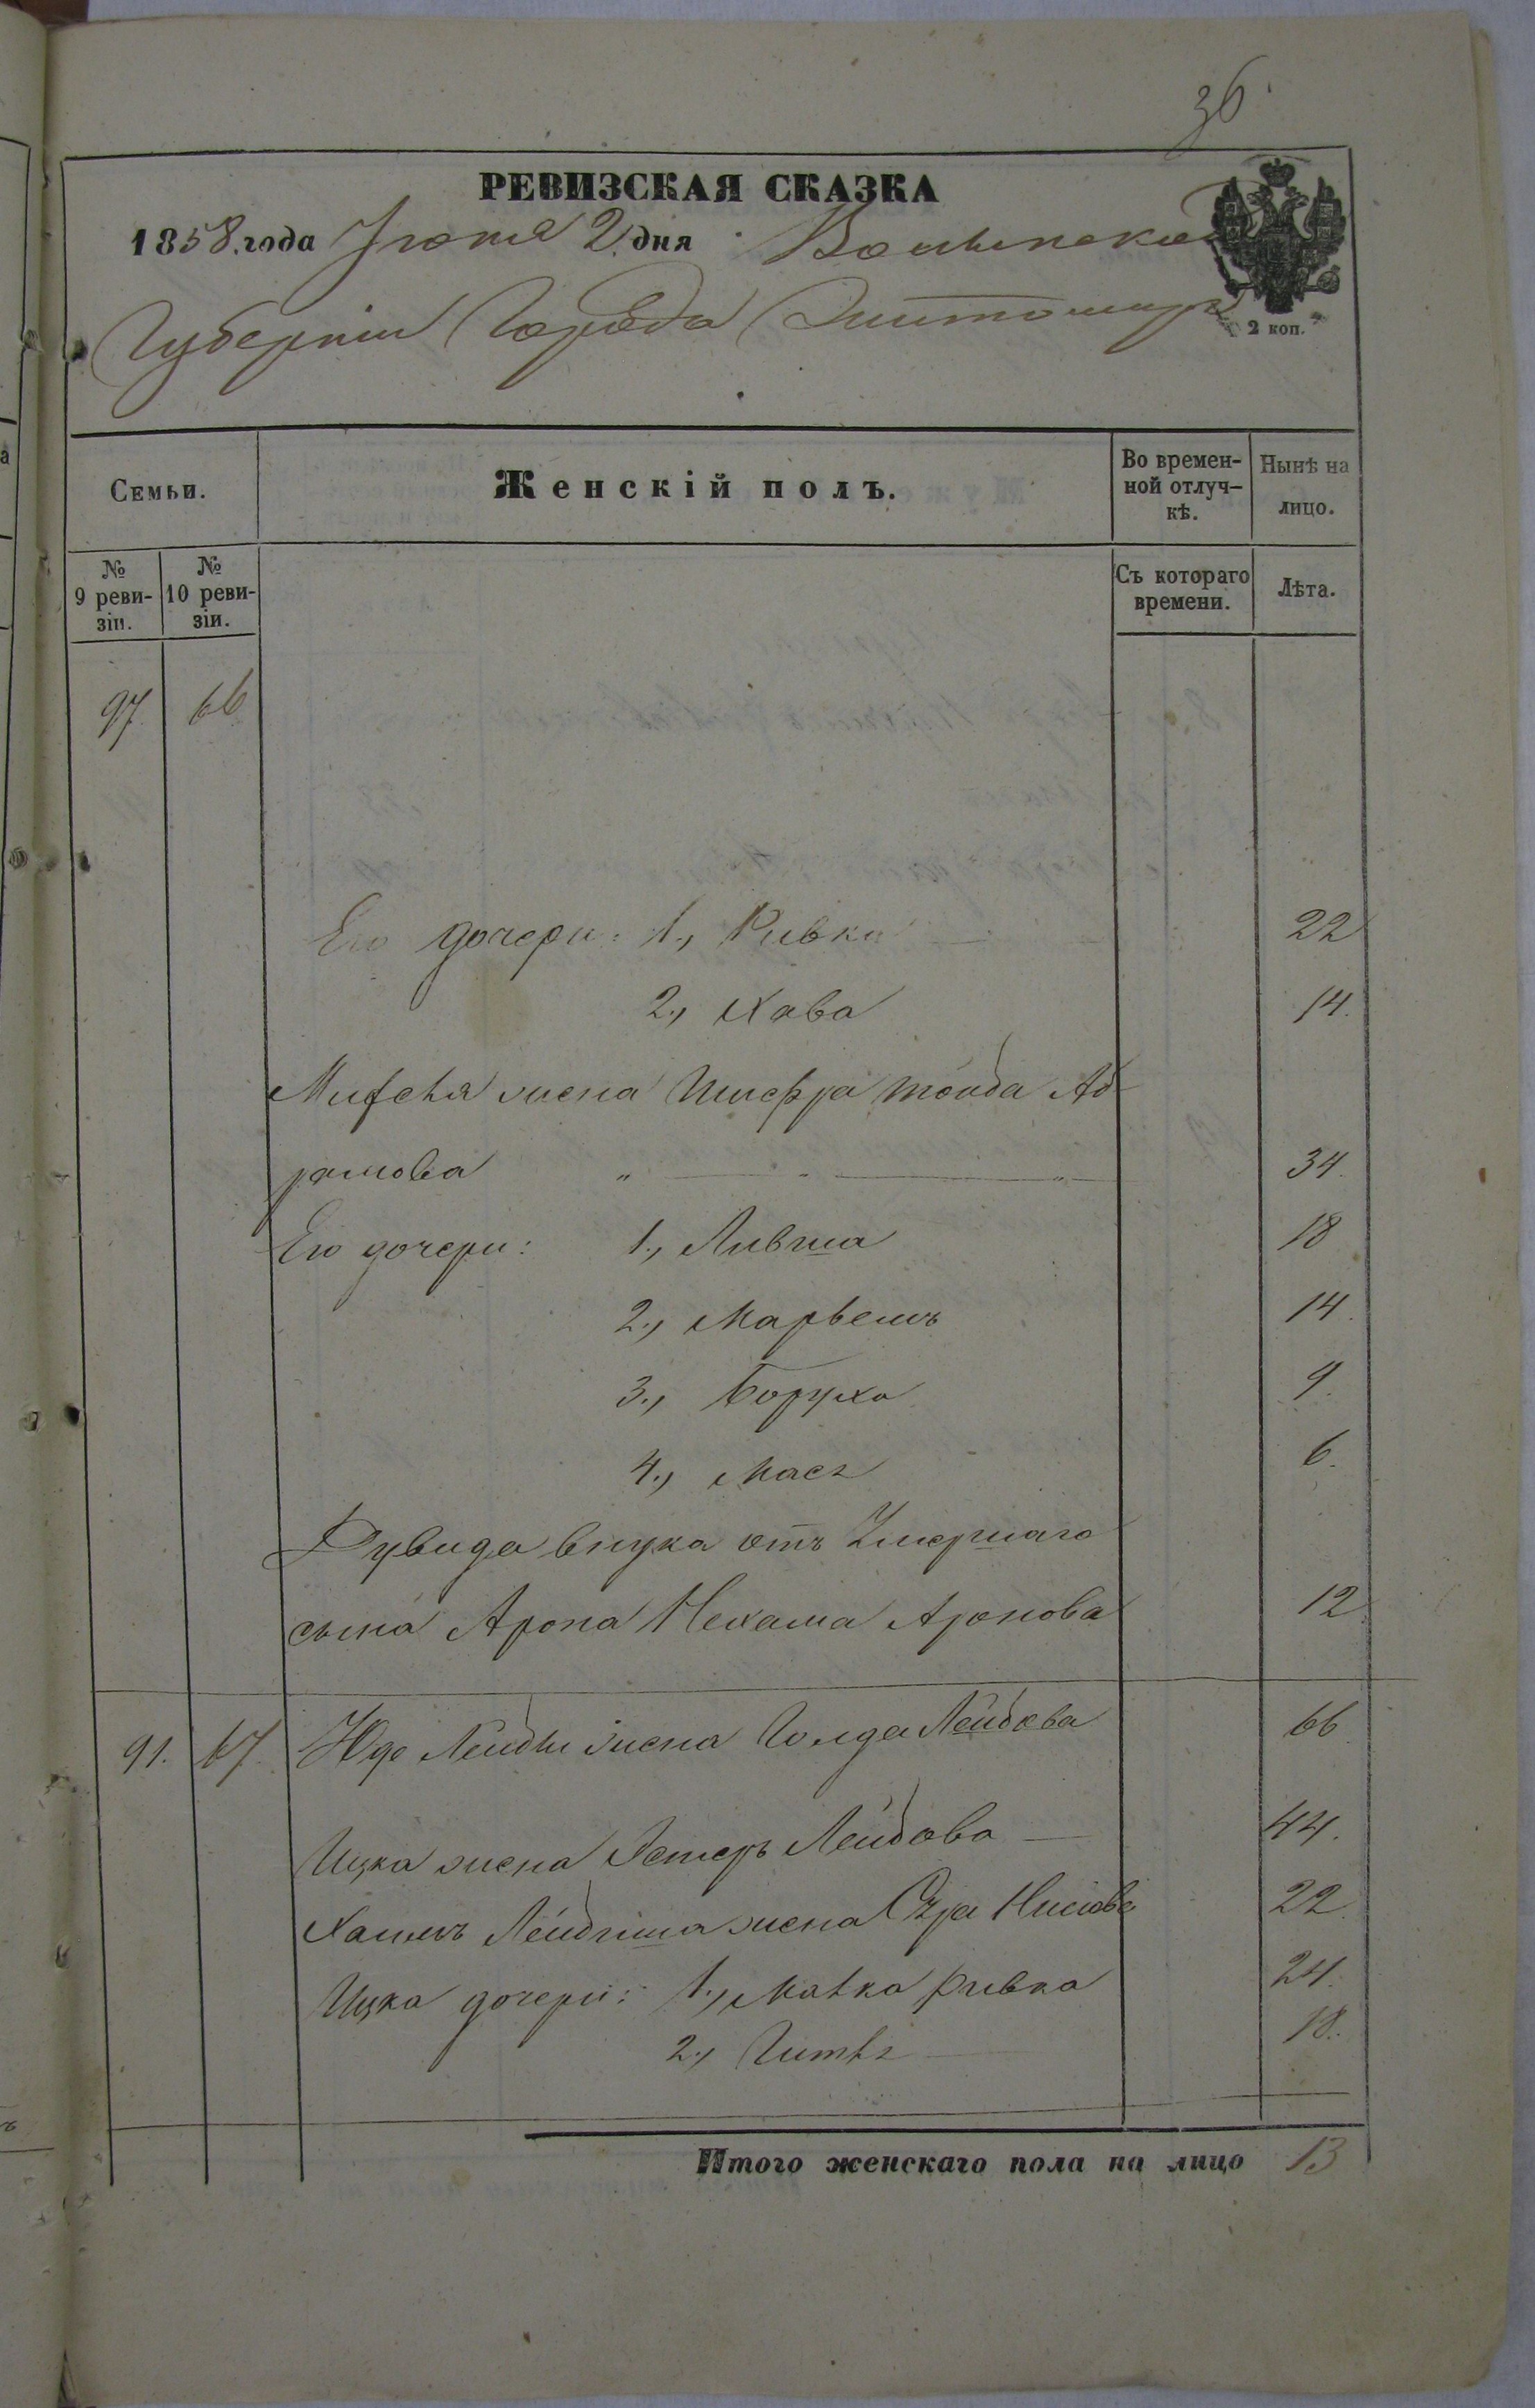 36.
РЕВИЗСКАЯ СКАЗКА
1858. года Іюня 2 дня Волынской
Губерніи Города Житомира
2 коп.
Семьи.
Женскій полъ.
Во времен-
ной отлуч-
кѣ.
Нынѣ на
лицо.
№
9 реви-
зіи.
№
10 реви-
зіи.
Съ котораго
времени.
Лѣта.
97. 66
Его дочери: 1., Ривка 22
2., Хава 14.
жена Шифра Тойба Аб
рамова 34.
Его дочери: 1., Лівша 18
2., Марьемъ 14.
3., Боруха 9.
4., Мася 6.
внука отъ Умершаго
сына Арона Нехама Аронова 12
91. 67. Юдо Лейбы жена Голда Лейбова 66
Ицка жена Эстеръ Лейбова 44.
Хаимъ жена Сура 22.
Ицка дочери: 1., Малка Ривка 24.
2., Гитля 18.
Итого женскаго пола на лицо 13